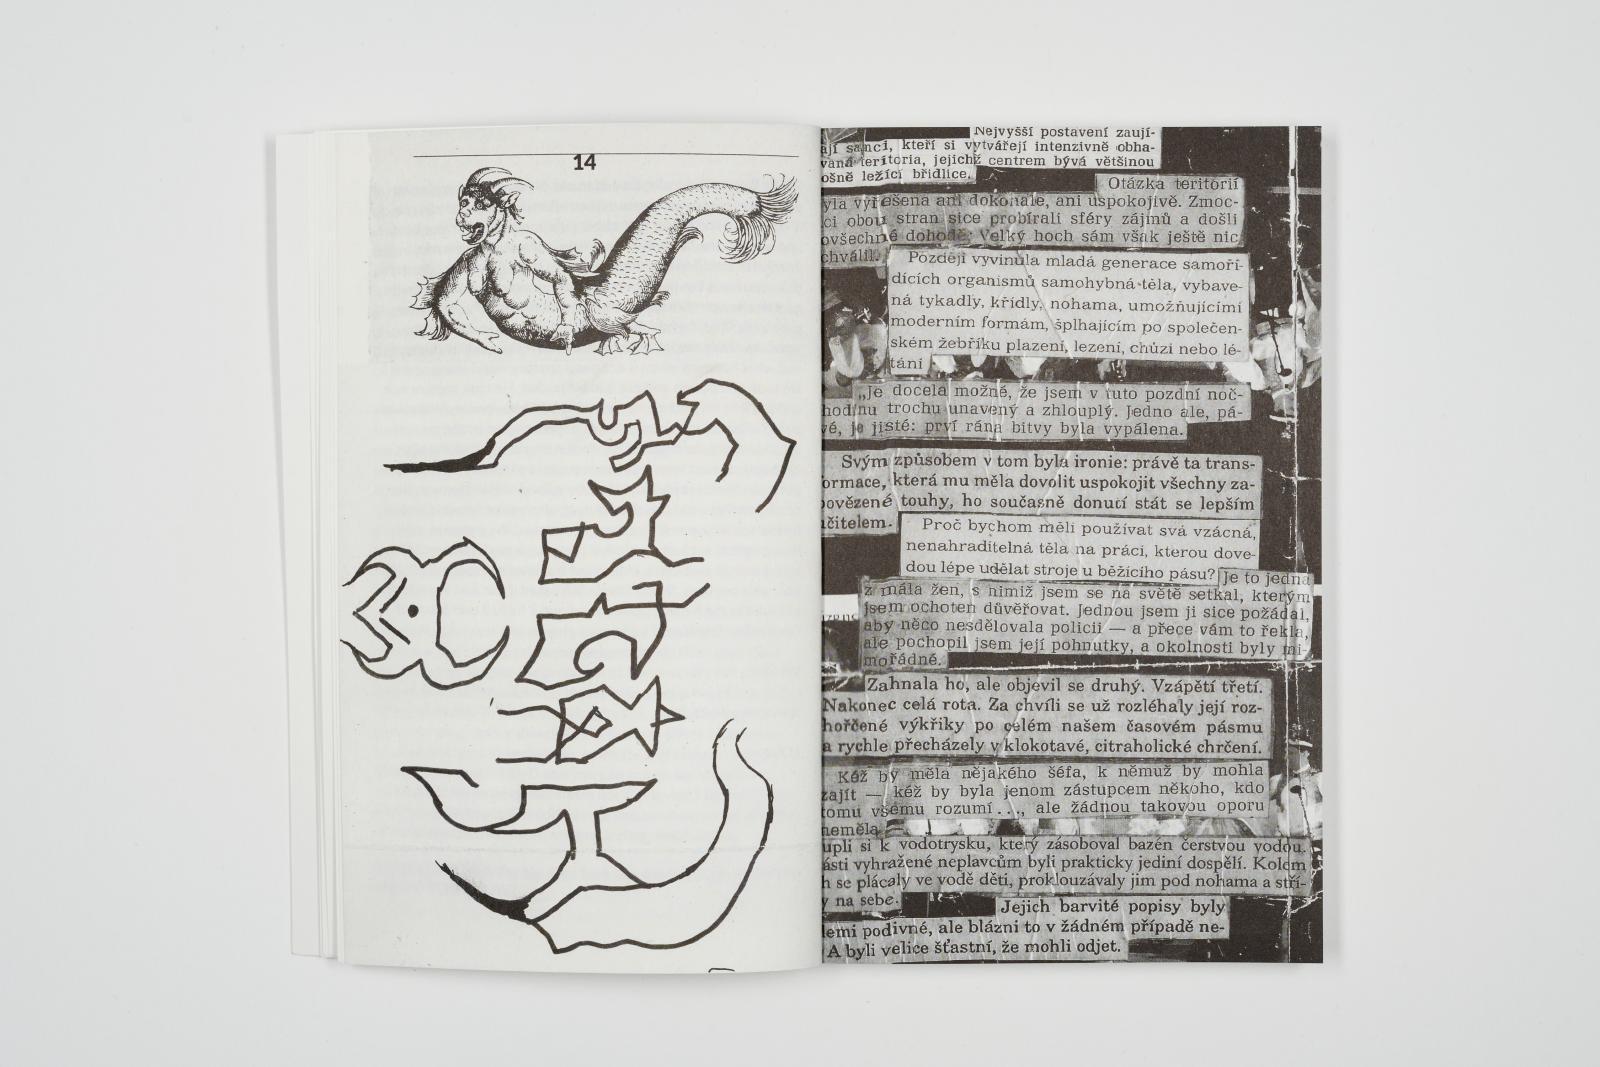 14
Nejvyšší postavení zaují-
ají samci, kteří si vytvářejí intenzivně obha-
vaná teritoria, jejichž centrem bývá většinou
ošně ležící břidlice.
Otázka teritorií
yla vyřešena ani dokonale, ani uspokojivě. Zmoc-
ci obou stran sice probírali sféry zájmů a došli
ovšechné dohodě. Velký hoch sám však ještě nic
chválil.
Později vyvinula mladá generace samoří-
dících organismů samohybná těla, vybave-
ná tykadly, křídly, nohama, umožňujícími
moderním formám, šplhajícím po společen-
ském žebříku plazení, lezení, chůzi nebo lé-
tání
„Je docela možné, že jsem v tuto pozdní noč-
hodinu trochu unavený a zhlouplý. Jedno ale, pá-
vé, je jisté: prví rána bitvy byla vypálena.
Svým způsobem v tom byla ironie: právě ta trans-
ormace, která mu měla dovolit uspokojit všechny za-
povězené touhy, ho současně donutí stát se lepším
učitelem.
Proč bychom měli používat svá vzácná,
nenahraditelná těla na práci, kterou dove-
dou lépe udělat stroje u běžícího pásu?
Je to jedna
z mála žen, s nimiž jsem se na světě setkal, kterým
jsem ochoten důvěřovat. Jednou jsem ji sice požádal,
aby něco nesdělovala policii — a přece vám to řekla,
ale pochopil jsem její pohnutky, a okolnosti byly mi-
mořádné.
Zahnala ho, ale objevil se druhý. Vzápětí třetí.
Nakonec celá rota. Za chvíli se už rozléhaly její roz-
hořčené výkřiky po celém našem časovém pásmu
a rychle přecházely v klokotavé, citraholické chrčení.
Kéž by měla nějakého šéfa, k němuž by mohla
zajít — kéž by byla jenom zástupcem někoho, kdo
tomu všemu rozumí ..., ale žádnou takovou oporu
neměla
upli si k vodotrysku, který zásoboval bazén čerstvou vodou.
ásti vyhražené neplavcům byli prakticky jediní dospělí. Kolem
h se plácaly ve vodě děti, proklouzávaly jim pod nohama a stří-
y na sebe.
Jejich barvité popisy byly
lemi podivné, ale blázni to v žádném případě ne-
A byli velice šťastní, že mohli odjet.